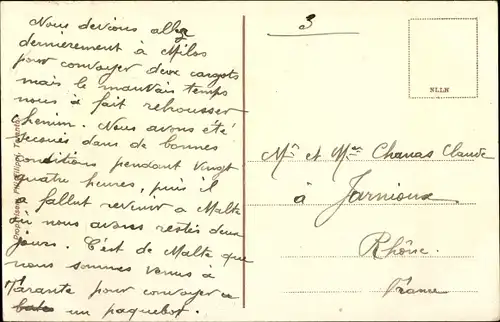 Nous devions aller
dernièrement à Milos
pour convoyer deux cargots
mais le mauvais temps
nous à fait rebrousser
chemin. Nous avons été
secoués dans de bonnes
conditions pendant vingt
quatre heures, puis il
a fallut revenir a Malte
ou nous avons restés deux
jours. C'est de Malte que
nous sommes venus à
Tarante pour convoyer ce
un paquebot.
3
NLLN
Mr et Mme Chanas Claude
à Jarnioux
Rhône.
France